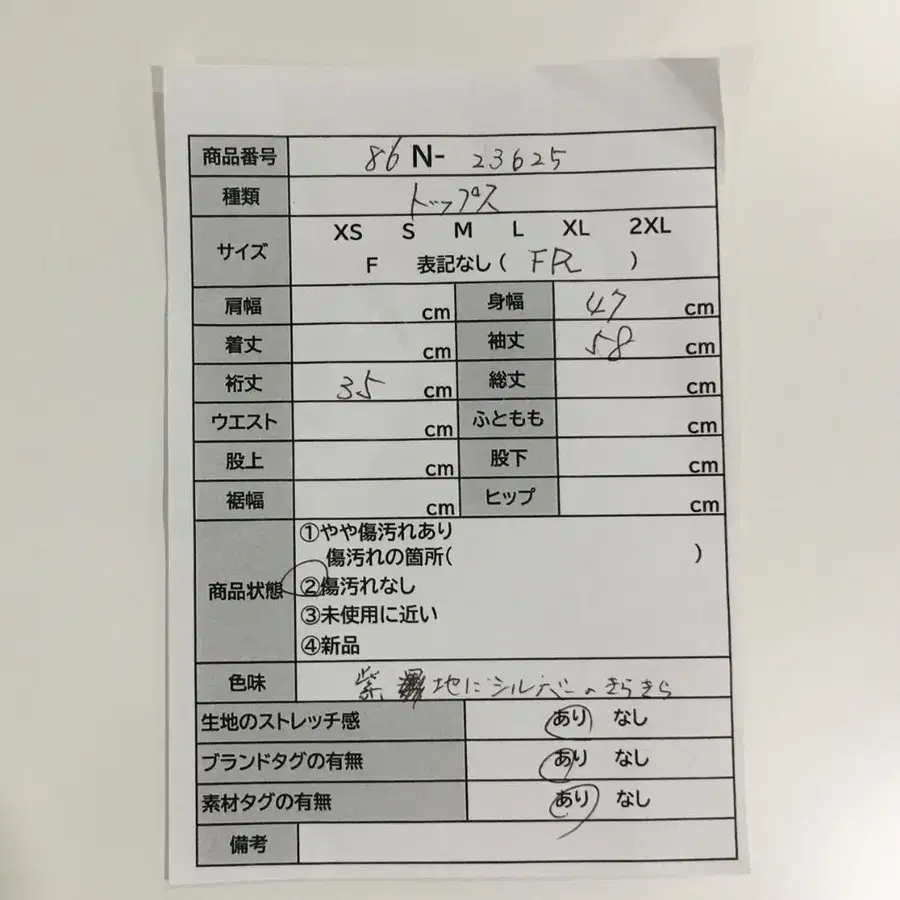 商品番号 86 N- 23625
種類 トップス
サイズ XS S M L XL 2XL
F 表記なし ( FR )
肩幅 cm 身幅 47 cm
着丈 cm 袖丈 58 cm
裄丈 35 cm 総丈 cm
ウエスト cm ふともも cm
股上 cm 股下 cm
裾幅 cm ヒップ cm
商品状態 ①やや傷汚れあり
傷汚れの箇所( )
②傷汚れなし
③未使用に近い
④新品
色味 紫 地にシルバーのきらきら
生地のストレッチ感 あり なし
ブランドタグの有無 あり なし
素材タグの有無 あり なし
備考